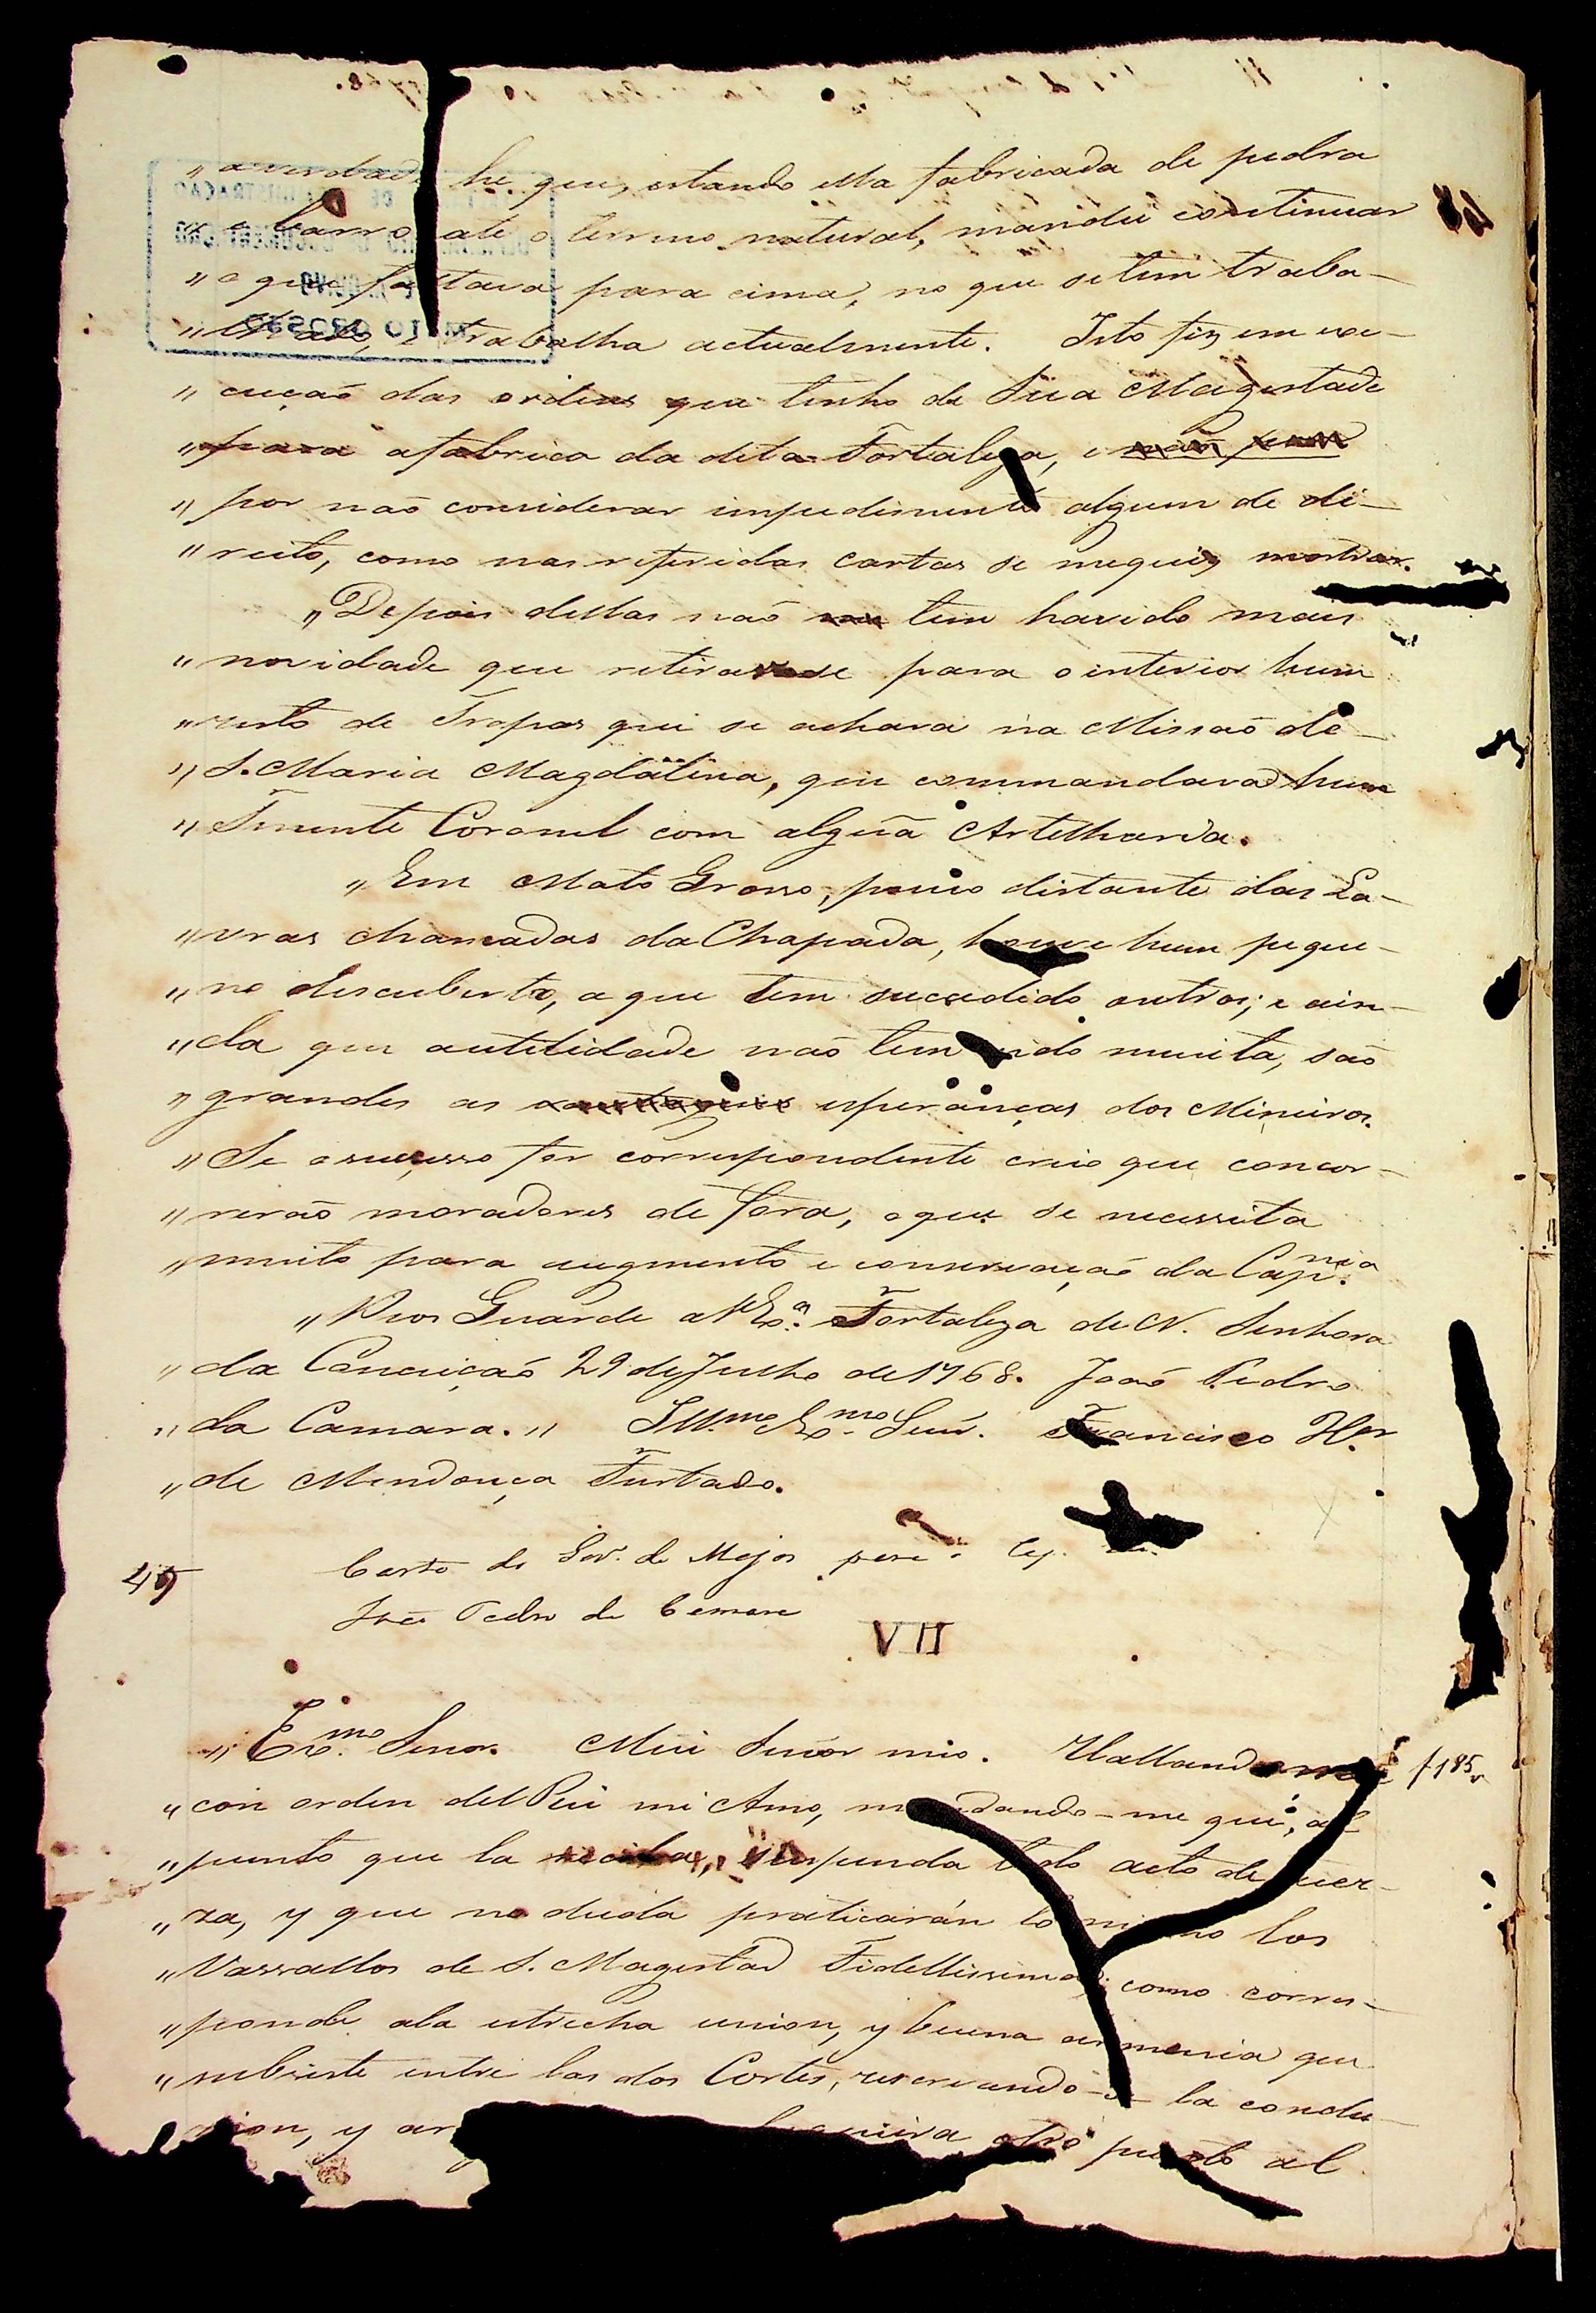 "averdade he que, estando esta fabricada de pedra
"e barro até o terreno natural, mandei continuar
"o que faltava para cima, no que se tem traba-
"lhado, e trabalha actualmente. Isto fiz em exe-
"cução das ordens que tenho de Sua Magestade
"para afabrica da dita Fortaleza, e
"por não considerar impedimento algum de di-
"reito, como nas referidas cartas se me quiz mostrar.
"Depois destas não tem havido mais
"novidade que retirar-se para o interior hum
"resto de Tropas que se achava na Missão de
"S. Maria Magdalena, que commandava hum
"Tenente Coronel com algũa Artelharia.
"Em Mato Grosso, pouco distante das La-
"vras chamadas da Chapada, houve hum peque-
"no descuberto, a que tem sucedido outros; e ain-
"da que autilidade não tem sido muita, são
"grandes as esperanças dos Mineiros.
"Se o sucesso for correspondente creio que concor-
"rerão moradores de fora, o que se necessita
"muito para augmento e conservação da Cap.nia
"Deos Guarde a V. Ex.a Fortaleza de N. Senhora
"da Conceição 29 de Julho de 1768. João Pedro
"da Camara." Ill.mo Ex.mo Senr. Francisco X.er
"de Mendonça Furtado.
49 Carta do Gov. de Mojos para o
João Pedro da Camara
VII
"Ex.mo Senor. Mui Senor mio. Hallandome f 185v
"con orden del Rei mi Amo, mandando-me que, al
"punto que la reciba, suspenda todo acto de fuer-
"za, y que no duda praticarán lo mismo los
"Vassallos de S. Magestad Fidellissima, como corres-
"ponde ala estrecha union, y buena armonia que
"subsiste entre las dos Cortes, reservando-se la condu-
otro punto al